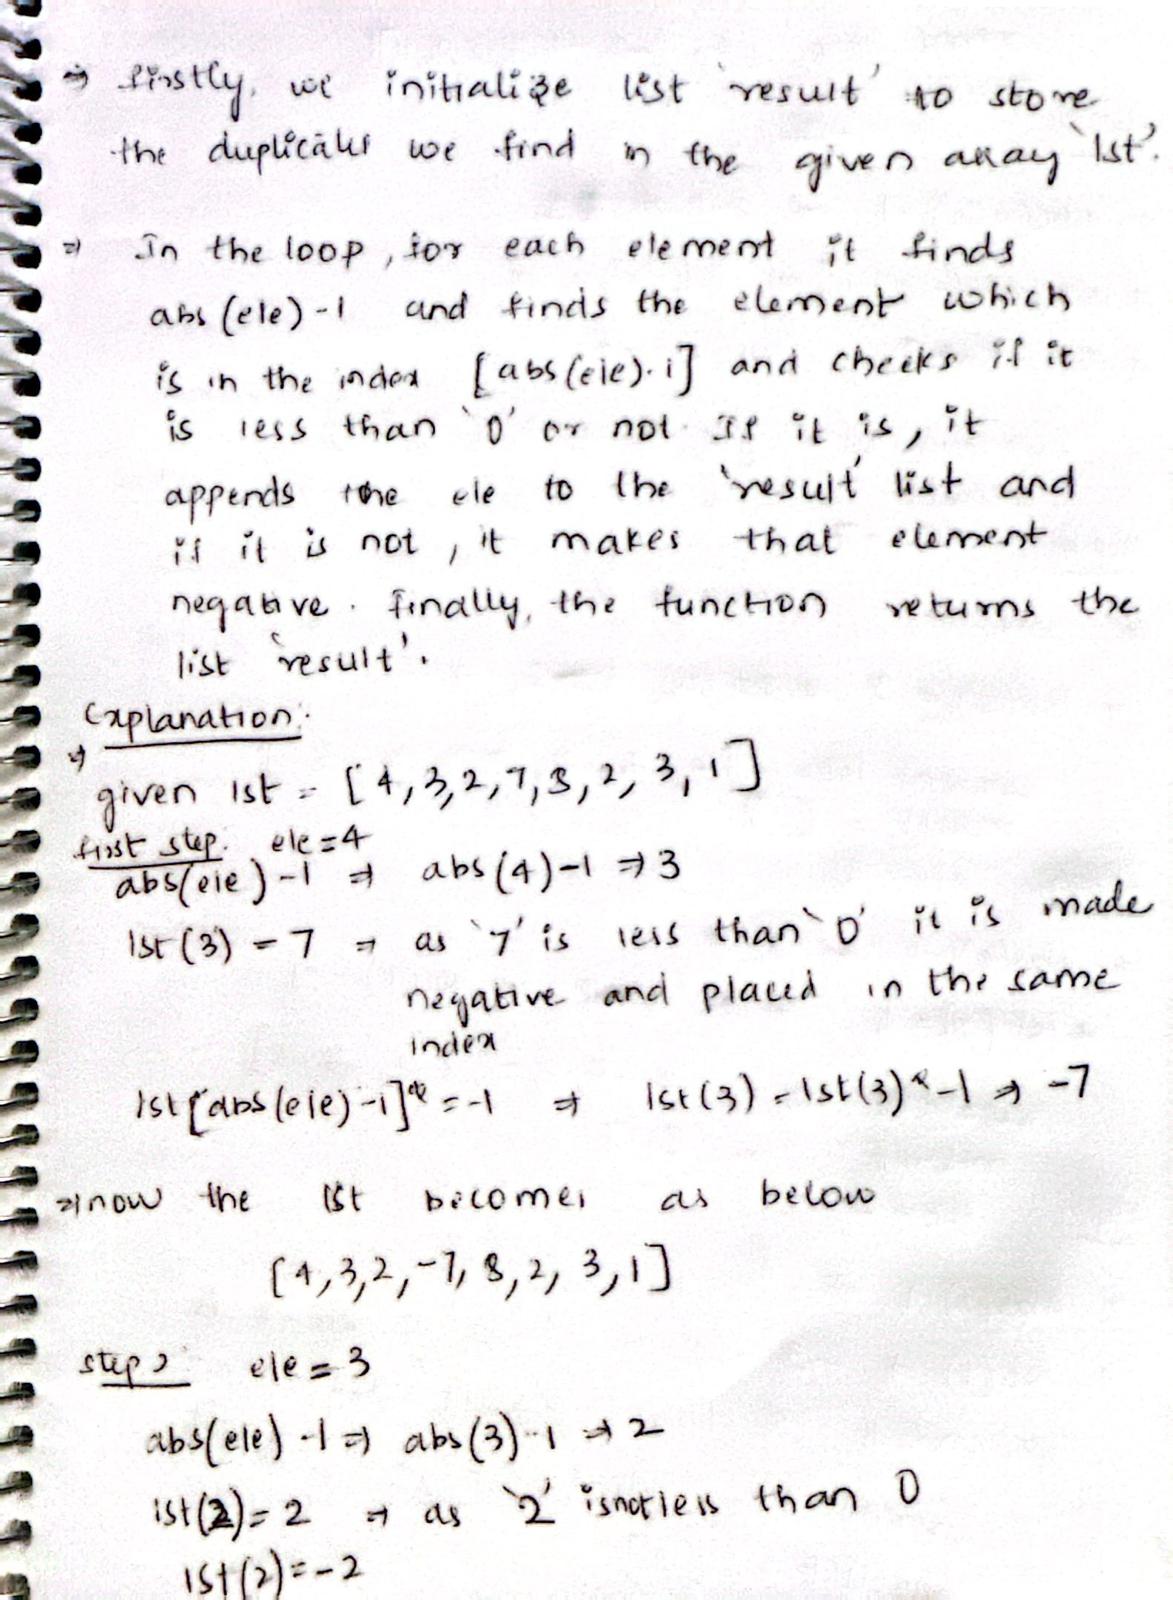 ⇒ firstly, we initialize list 'result' to store
the duplicates we find in the given array 'lst'.
⇒ In the loop, for each element it finds
abs(ele)-1 and finds the element which
is in the index [abs(ele)-1] and checks if it
is less than '0' or not. If it is, it
appends the ele to the 'result' list and
if it is not, it makes that element
negative. finally, the function returns the
list 'result'.
Explanation:
⇒ given lst = [4,3,2,7,8,2,3,1]
first step: ele=4
abs(ele)-1 ⇒ abs(4)-1 ⇒ 3
lst(3) = 7 ⇒ as '7' is less than '0' it is made
negative and placed in the same
index
lst[abs(ele)-1]*=-1 ⇒ lst(3) = lst(3)*-1 ⇒ -7
⇒ now the lst becomes as below
[4,3,2,-7,8,2,3,1]
step 2 ele=3
abs(ele)-1 ⇒ abs(3)-1 ⇒ 2
lst(2)=2 ⇒ as '2' is not less than 0
lst(2)=-2